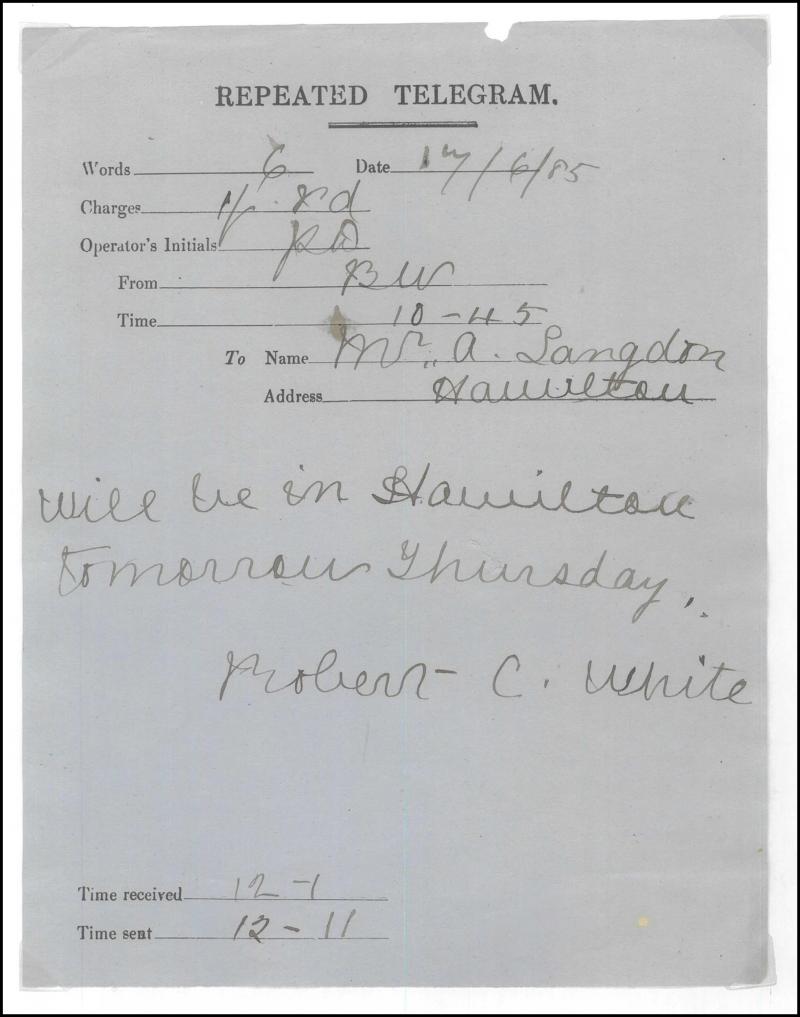 REPEATED TELEGRAM.
Words 6 Date 17/6/85
Charges 1/- Rd
Operator's Initials RD
From BW
Time 10-45
To Name Mr. A. Langdon
Address Hamilton
Will be in Hamilton
tomorrow Thursday.
Robert C. White
Time received 12-1
Time sent 12-11